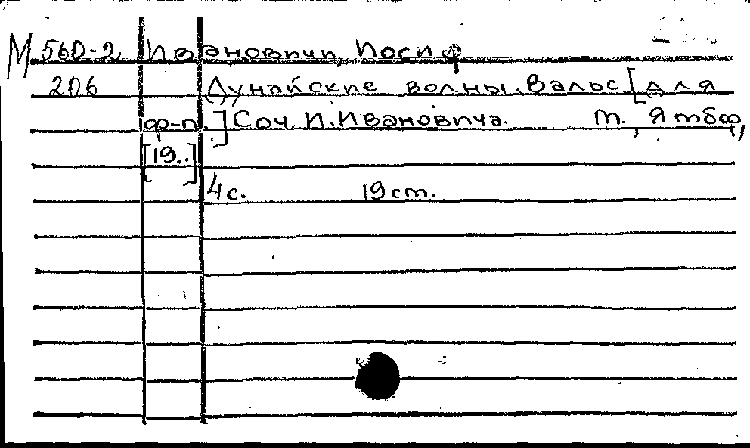 М 560-2 Иванович, Иосиф
206 Дунайские волны. Вальс [для
ф-п.] Соч. И. Ивановича. т., Ятбф,
[19..]
4 с. 19 ст.